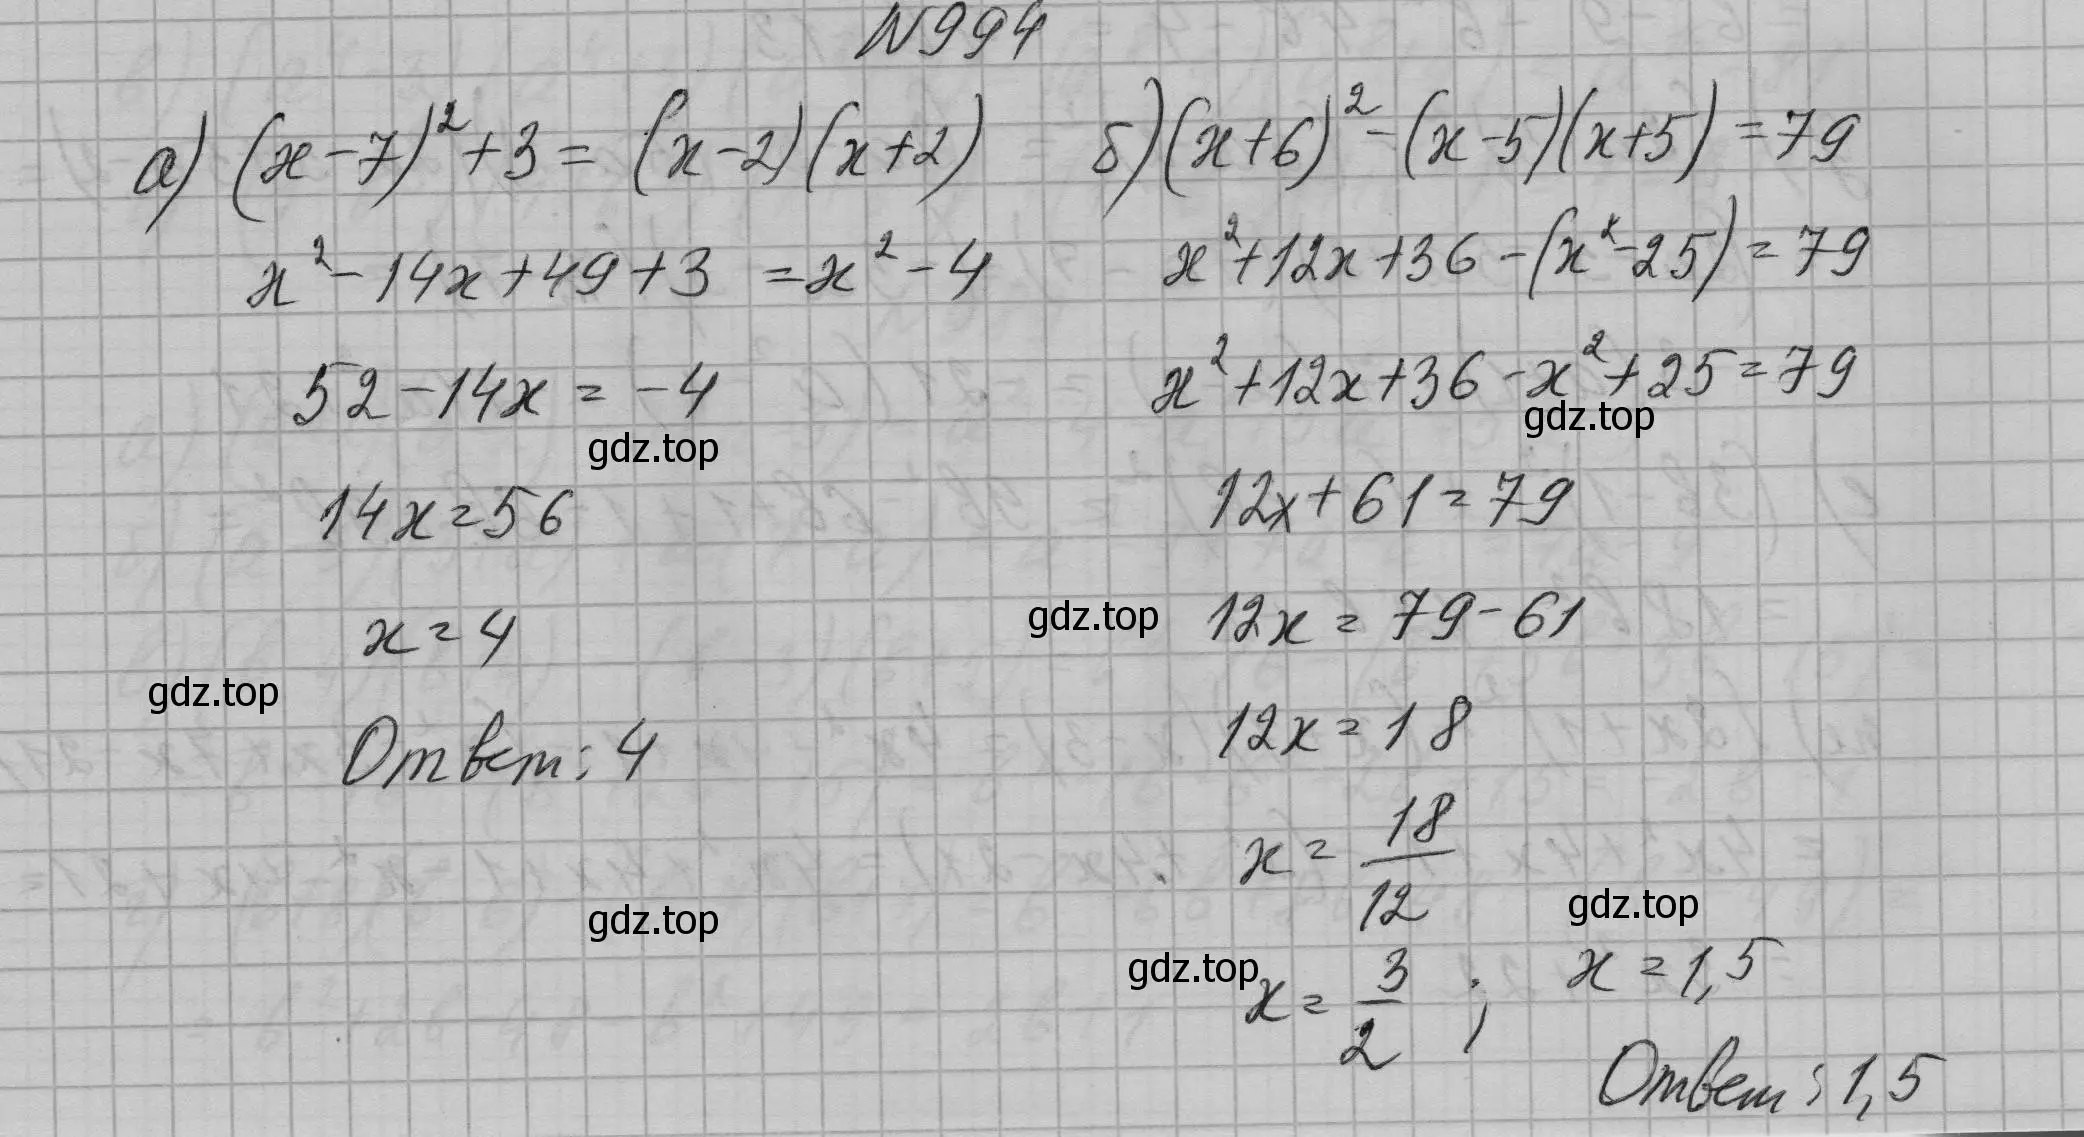 N994
а) (x-7)²+3=(x-2)(x+2)
x²-14x+49+3=x²-4
52-14x=-4
gdz.top
14x=56
x=4
gdz.top
Ответ: 4
gdz.top
б) (x+6)²-(x-5)(x+5)=79
x²+12x+36-(x²-25)=79
x²+12x+36-x²+25=79
gdz.top
12x+61=79
gdz.top
12x=79-61
12x=18
x=18/12
gdz.top
gdz.top
x=3/2; x=1,5
Ответ: 1,5